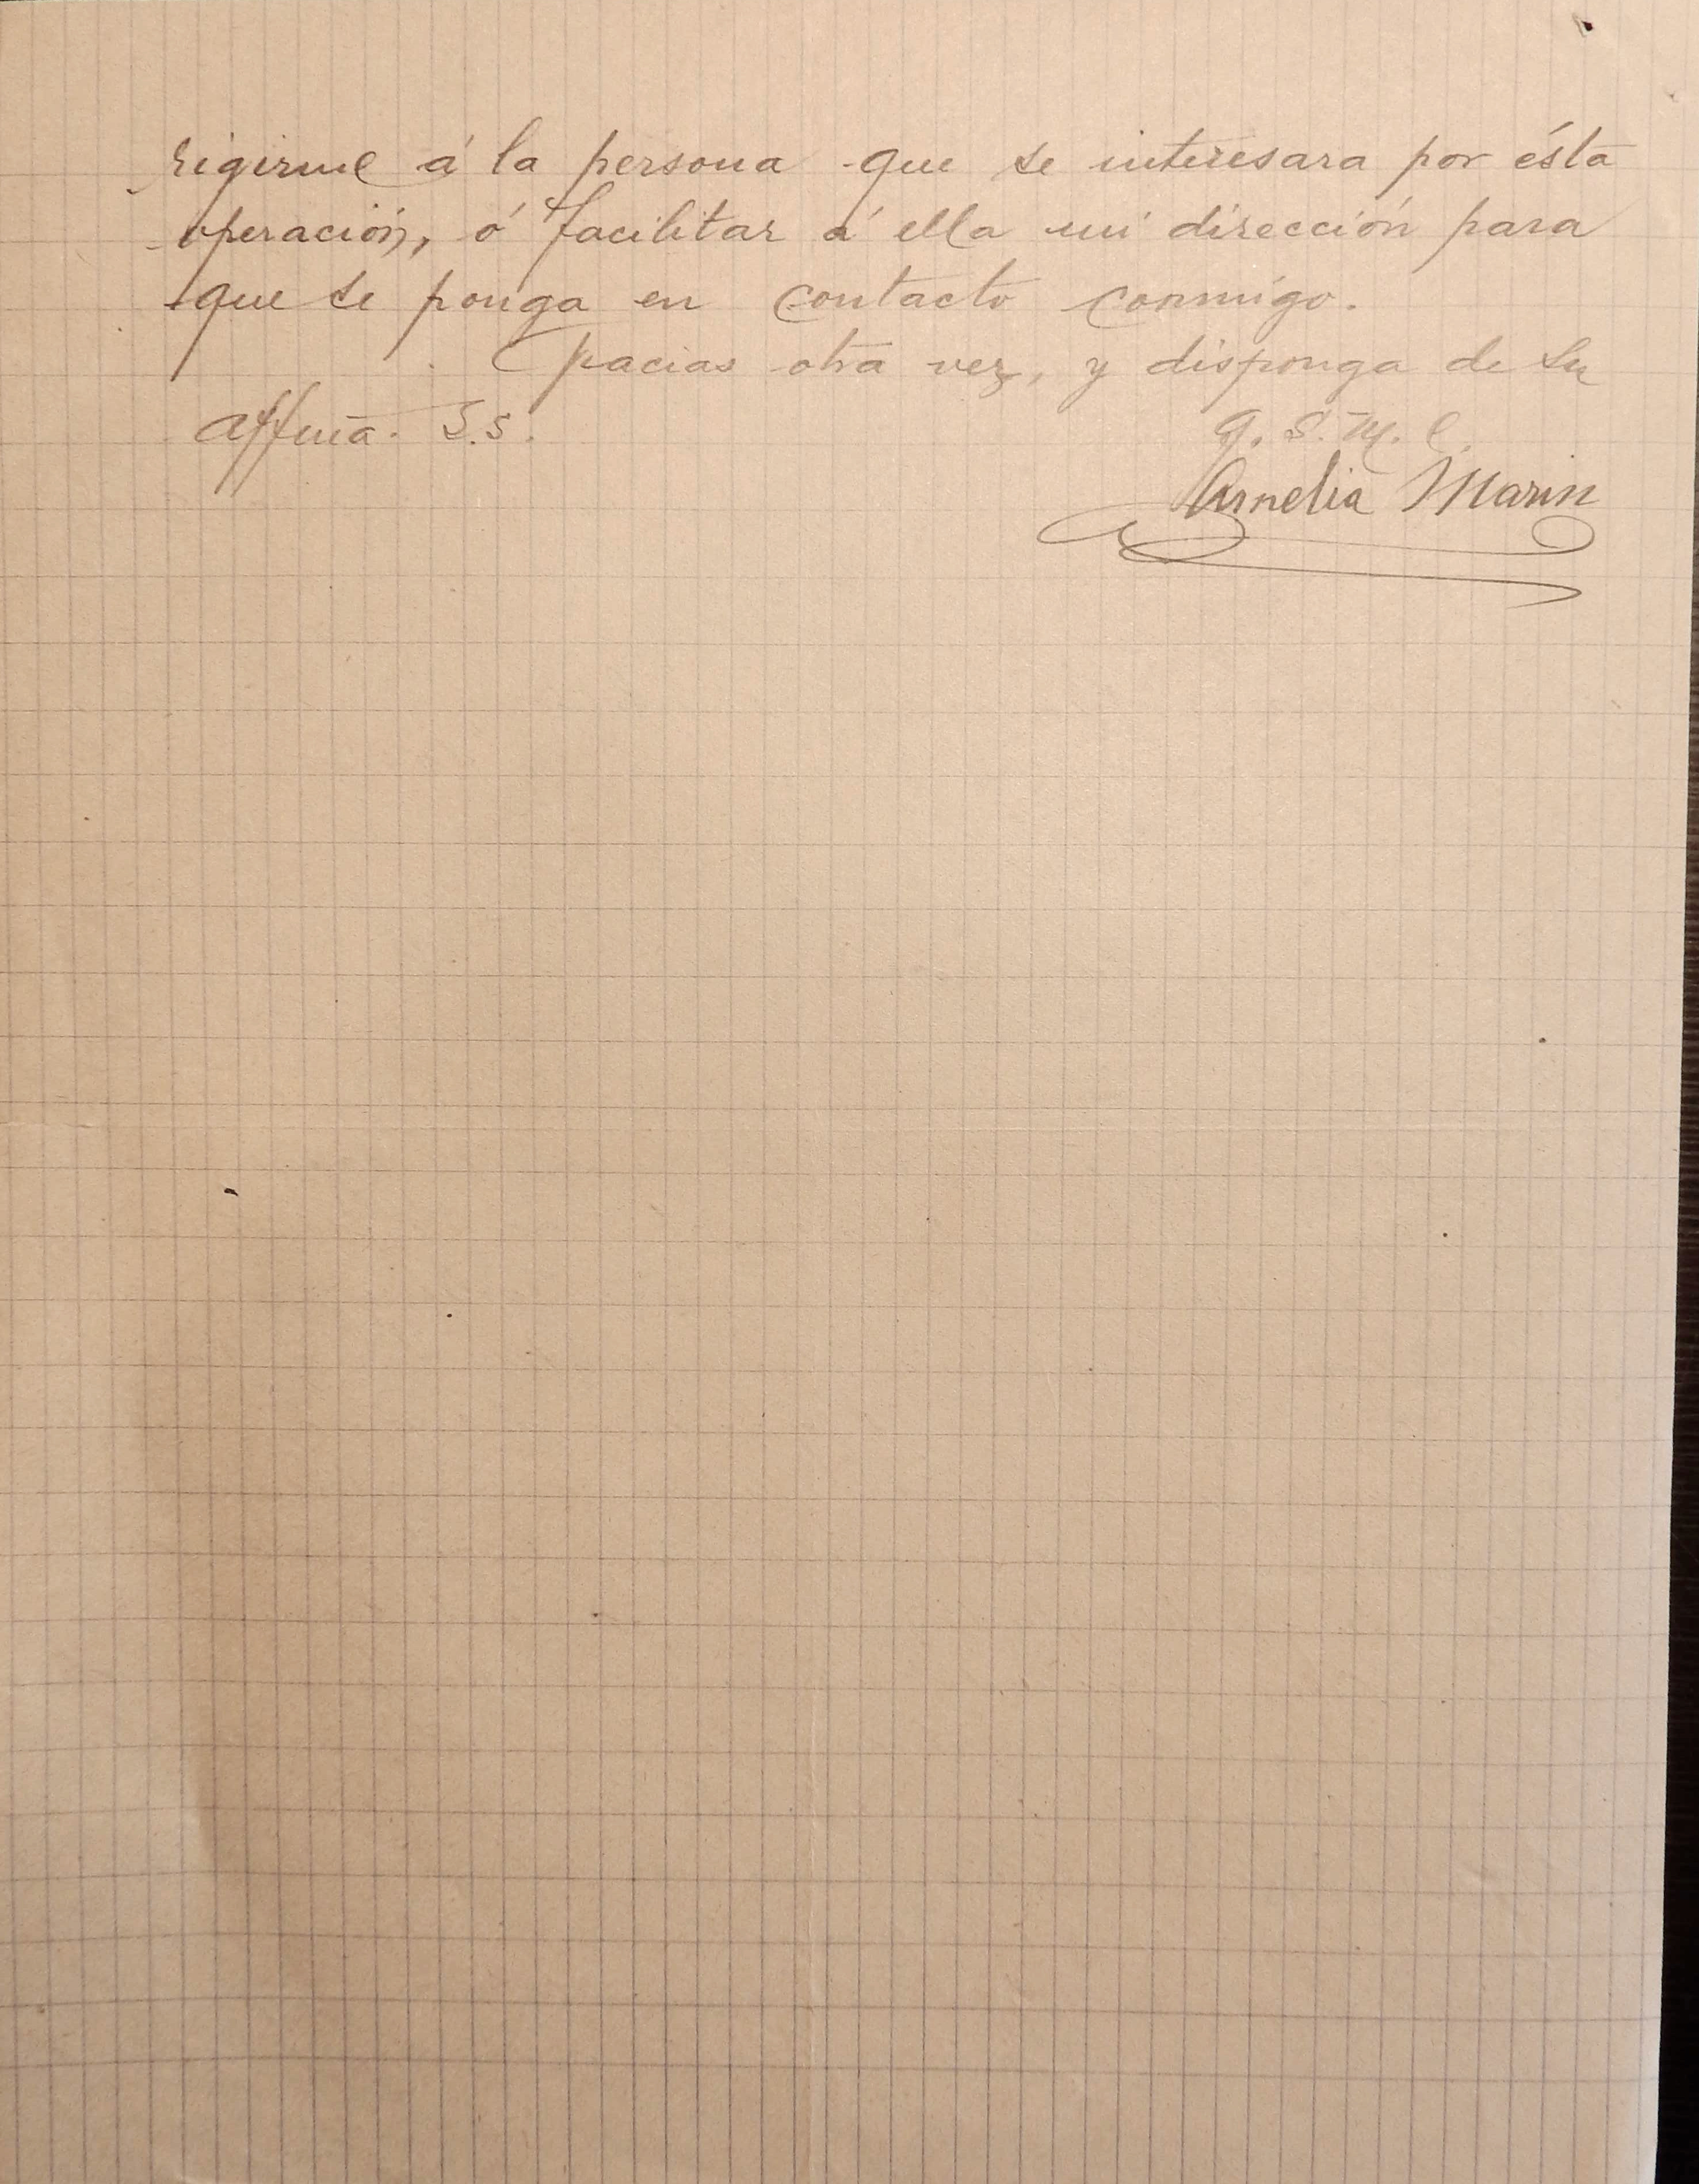 rigirme á la persona que se interesara por ésta
operación, ó facilitar á ella mi dirección para
que se ponga en contacto conmigo.
Gracias otra vez, y disponga de su
affma. S.S.
q. s. m. e.
Amelia Marin